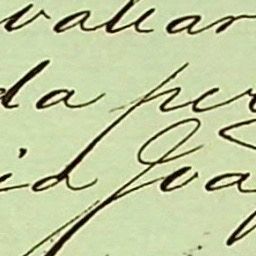 vallar
da per
id Joa